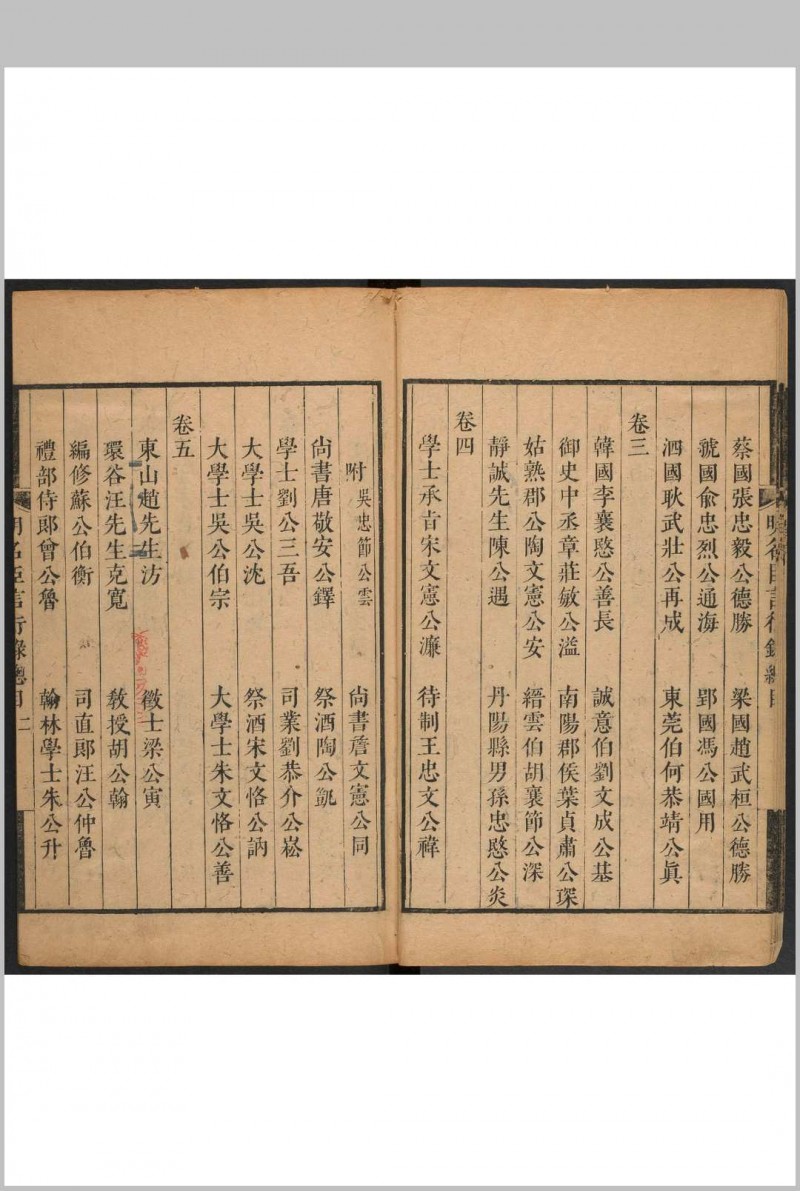 蔡國張忠毅公德勝　梁國趙武桓公德勝
虢國俞忠烈公通海　郢國馮公國用
泗國耿武壯公再成　東莞伯何恭靖公眞
卷三
韓國李襄愍公善長　誠意伯劉文成公基
御史中丞章莊敏公溢　南陽郡侯葉貞肅公琛
姑熟郡公陶文憲公安　縉雲伯胡襄節公深
靜誠先生陳公遇　丹陽縣男孫忠愍公炎
卷四
學士承旨宋文憲公濂　待制王忠文公禕
附吳忠節公雲　尚書詹文憲公同
尚書唐敬安公鐸　祭酒陶公凱
學士劉公三吾　司業劉恭介公崧
大學士吳公沈　祭酒宋文恪公訥
大學士吳公伯宗　大學士朱文恪公善
卷五
東山趙先生汸　徵士梁公寅
環谷汪先生克寬　敎授胡公翰
編修蘇公伯衡　司直郞汪公仲魯
禮部侍郞曾公魯　翰林學士朱公升
明名臣言行錄總目　二